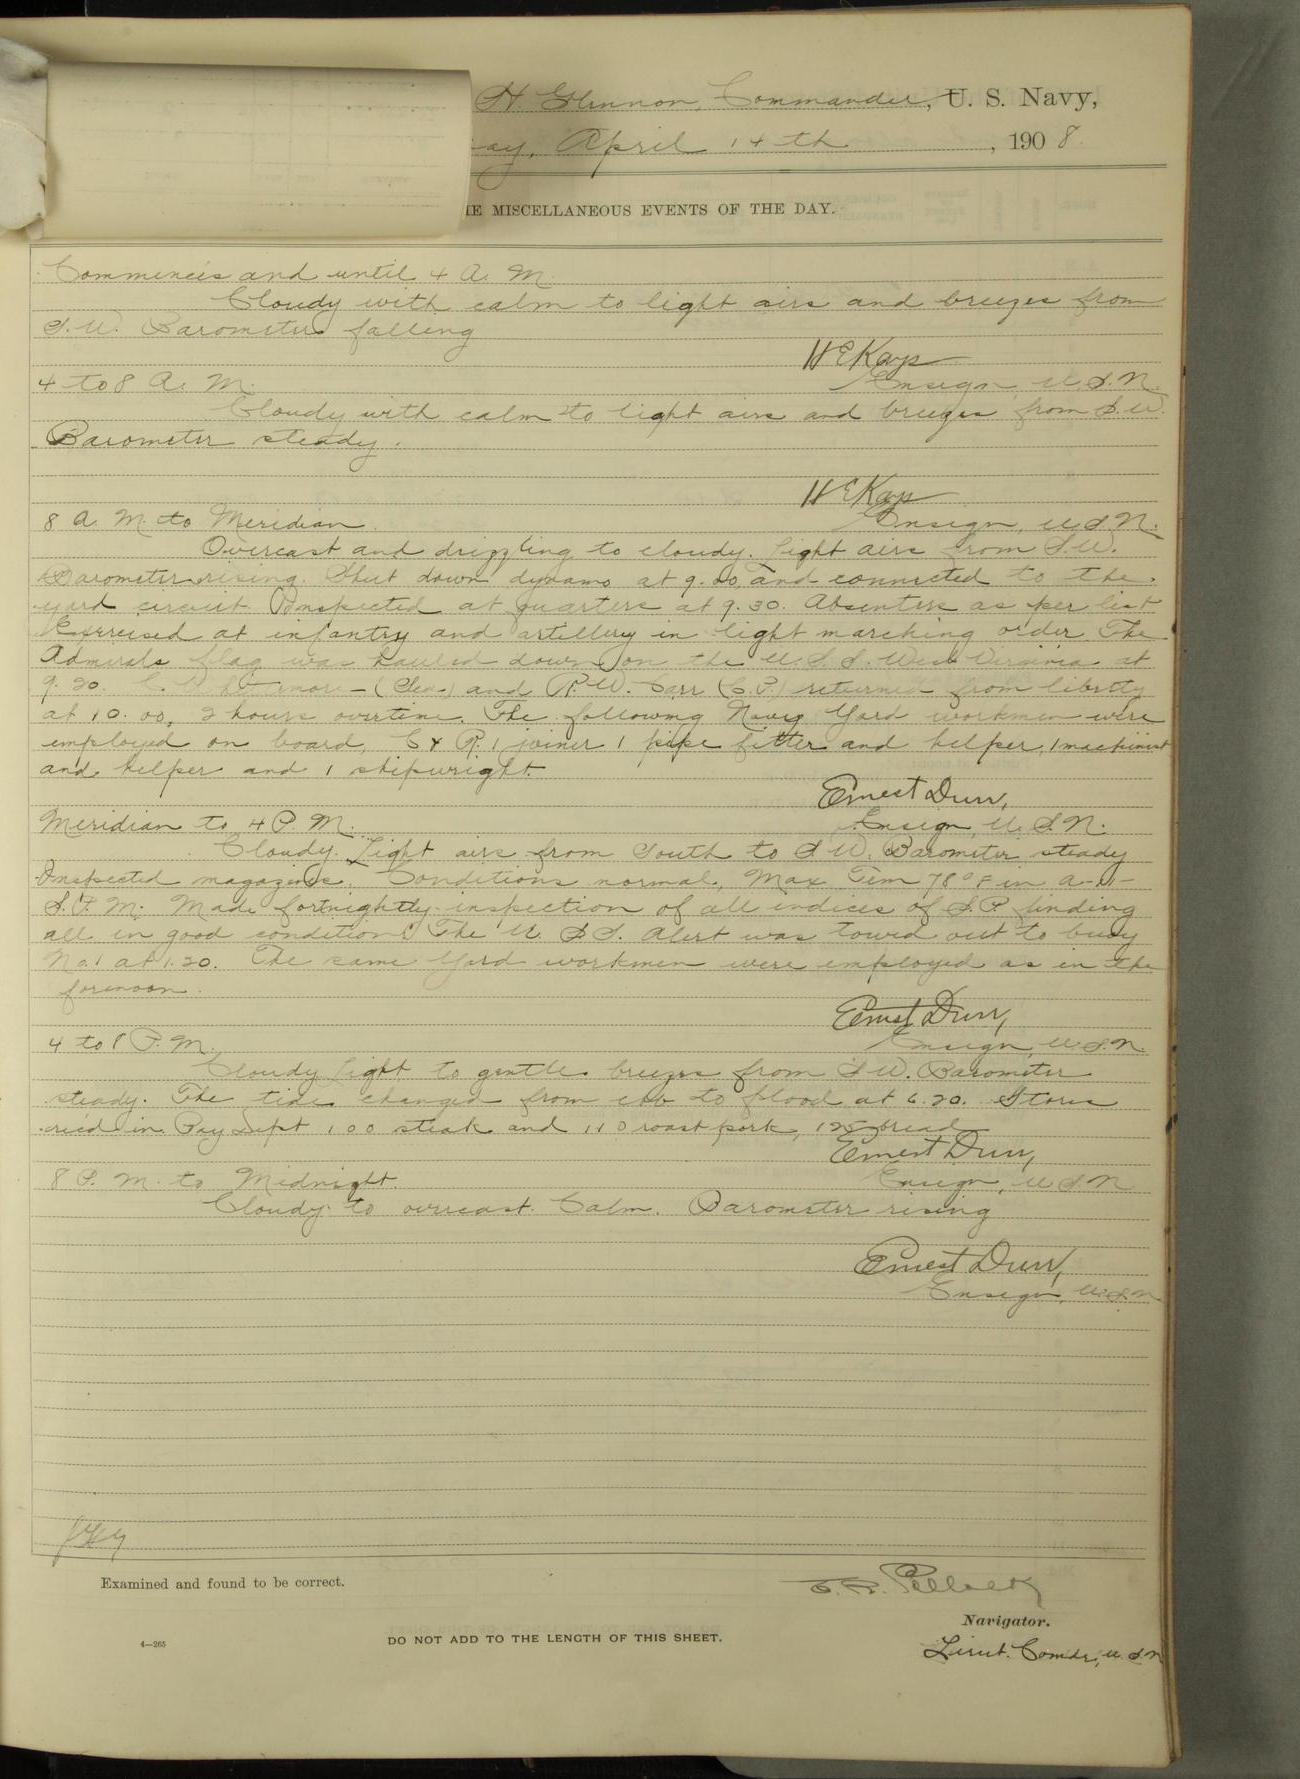 H. Glennon, Commander, U. S. Navy,
ay, April 14th, 1908.
MISCELLANEOUS EVENTS OF THE DAY.
Commences and until 4 A. M.
Cloudy with calm to light airs and breezes from
S.W. Barometer falling
H E Kays
Ensign, U.S.N.
4 to 8 A. M.
Cloudy with calm to light airs and breezes from S.W.
Barometer steady.
H E Kays
Ensign, U.S.N.
8 A. M. to Meridian.
Overcast and drizzling to cloudy. Light airs from S.W.
Barometer rising. Shut down dynamo at 9.00, and connected to the
yard circuit. Inspected at quarters at 9.30. Absentees as per list
Exercised at infantry and artillery in light marching order The
Admirals flag was hauled down on the U.S.S. West Virginia at
9.20. (Sea.) and R.W. Carr (C.P.) returned from liberty
at 10.00, 2 hours overtime. The following Navy Yard workmen were
employed on board, C & R. 1 joiner 1 pipe fitter and helper, 1 machinist
and helper and 1 shipwright.
Ernest Durr,
Ensign, U.S.N.
Meridian to 4 P. M.
Cloudy. Light airs from South to S W. Barometer steady
Inspected magazines. Conditions normal, Max Tem 78° F in A-
S.P.M. Made fortnightly inspection of all indices of S.P. finding
all in good condition. The U.S.S. Alert was towed out to buoy
No.1 at 1.20. The same Yard workmen were employed as in the
forenoon.
Ernest Durr,
Ensign, U.S.N.
4 to 8 P.M.
Cloudy Light to gentle breezes from S W. Barometer
steady. The tide changed from ebb to flood at 6.20. Stores
rec'd in Pay Dept 100 steak and 110 roast pork, 125 bread
Ernest Durr,
Ensign, U S N
8 P. M. to Midnight.
Cloudy to overcast. Calm. Barometer rising
Ernest Durr,
Ensign, U.S.N
Examined and found to be correct.
E. R. Pollock
Navigator.
4—265
DO NOT ADD TO THE LENGTH OF THIS SHEET.
Lieut. Comdr, U.S.N